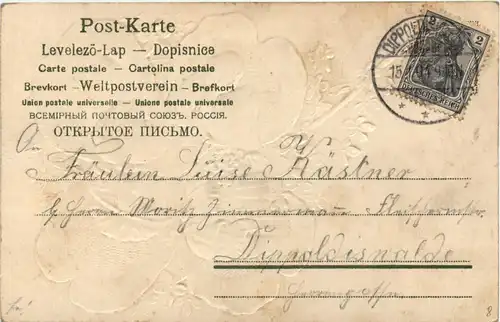 Post-Karte
Levelező-Lap — Dopisnice
Carte postale — Cartolina postale
Brevkort – Weltpostverein – Brefkort
Union postale universelle — Unione postale universale
ВСЕМІРНЫЙ ПОЧТОВЫЙ СОЮЗЪ. РОССІЯ.
ОТКРЫТОЕ ПИСЬМО.
2
DEUTSCHES REICH
An
Fräulein Luise Kästner
Herrn Moritz Zimmermann
Dippoldiswalde
8